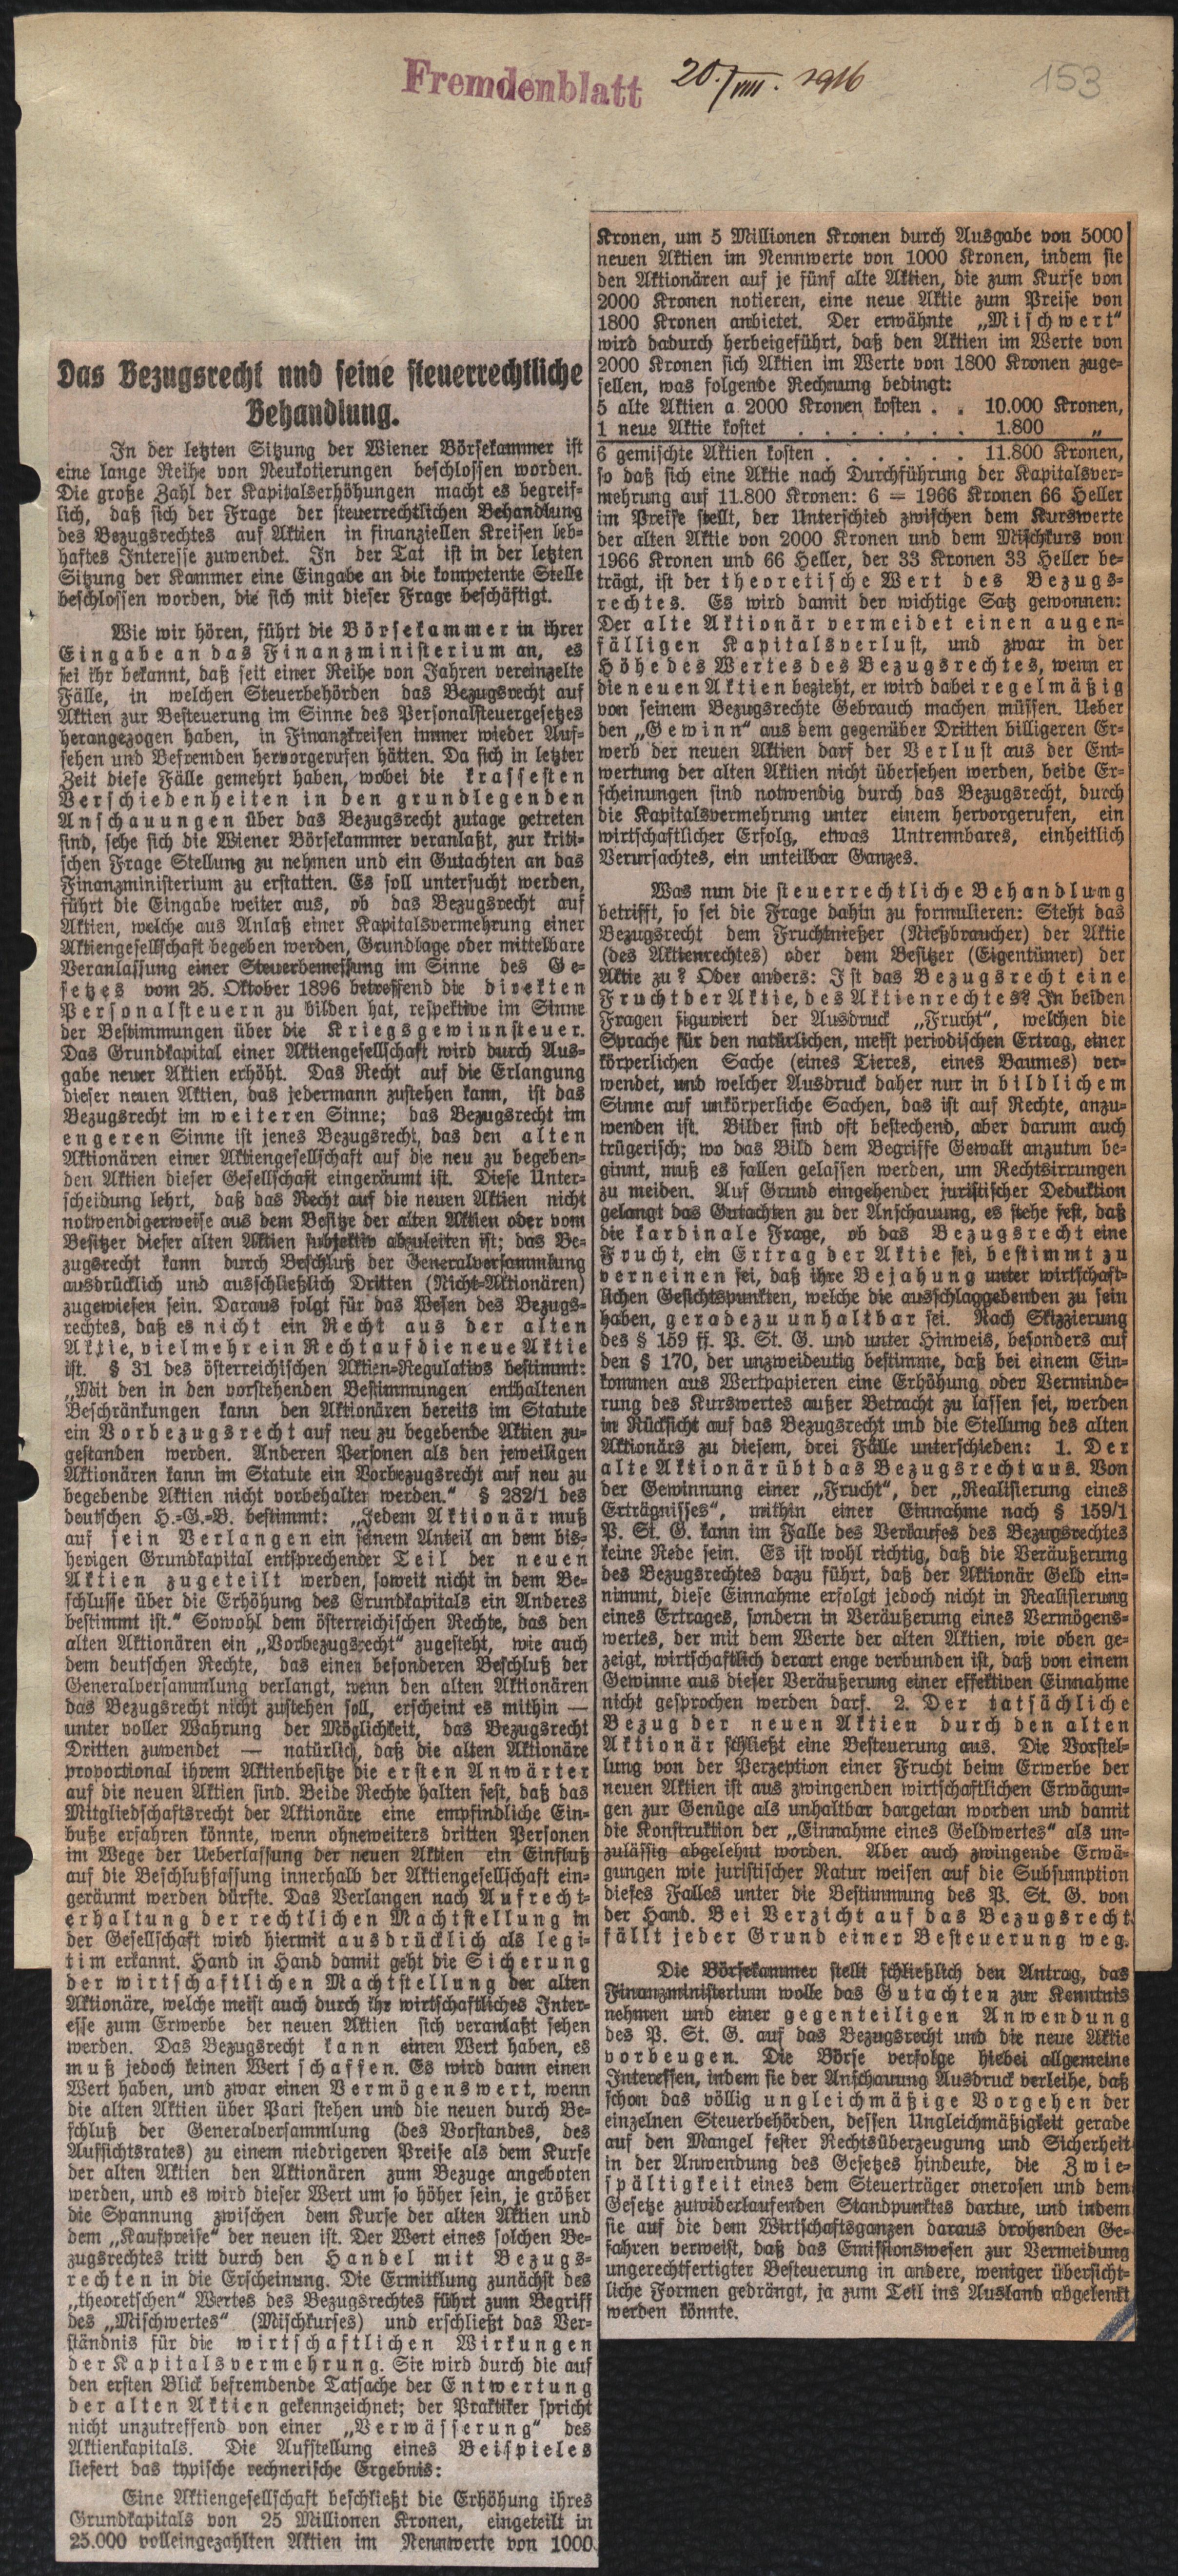 Fremdenblatt 20./VIII. 1916
153
Das Bezugsrecht und seine steuerrechtliche
Behandlung.
In der letzten Sitzung der Wiener Börsekammer ist
eine lange Reihe von Neukotierungen beschlossen worden.
Die große Zahl der Kapitalserhöhungen macht es begreif-
lich, daß sich der Frage der steuerrechtlichen Behandlung
des Bezugsrechtes auf Aktien in finanziellen Kreisen leb-
haftes Interesse zuwendet. In der Tat ist in der letzten
Sitzung der Kammer eine Eingabe an die kompetente Stelle
beschlossen worden, die sich mit dieser Frage beschäftigt.
Wie wir hören, führt die Börsekammer in ihrer
Eingabe an das Finanzministerium an, es
sei ihr bekannt, daß seit einer Reihe von Jahren vereinzelte
Fälle, in welchen Steuerbehörden das Bezugsrecht auf
Aktien zur Besteuerung im Sinne des Personalsteuergesetzes
herangezogen haben, in Finanzkreisen immer wieder Auf-
sehen und Befremden hervorgerufen hätten. Da sich in letzter
Zeit diese Fälle gemehrt haben, wobei die krassesten
Verschiedenheiten in den grundlegenden
Anschauungen über das Bezugsrecht zutage getreten
sind, sehe sich die Wiener Börsekammer veranlaßt, zur kriti-
schen Frage Stellung zu nehmen und ein Gutachten an das
Finanzministerium zu erstatten. Es soll untersucht werden,
führt die Eingabe weiter aus, ob das Bezugsrecht auf
Aktien, welche aus Anlaß einer Kapitalsvermehrung einer
Aktiengesellschaft begeben werden, Grundlage oder mittelbare
Veranlassung einer Steuerbemessung im Sinne des Ge-
setzes vom 25. Oktober 1896 betreffend die direkten
Personalsteuern zu bilden hat, respektive im Sinne
der Bestimmungen über die Kriegsgewinnsteuer.
Das Grundkapital einer Aktiengesellschaft wird durch Aus-
gabe neuer Aktien erhöht. Das Recht auf die Erlangung
dieser neuen Aktien, das jedermann zustehen kann, ist das
Bezugsrecht im weiteren Sinne; das Bezugsrecht im
engeren Sinne ist jenes Bezugsrecht, das den alten
Aktionären einer Aktiengesellschaft auf die neu zu begeben-
den Aktien dieser Gesellschaft eingeräumt ist. Diese Unter-
scheidung lehrt, daß das Recht auf die neuen Aktien nicht
notwendigerweise aus dem Besitze der alten Aktien oder vom
Besitzer dieser alten Aktien subjektiv abzuleiten ist; das Be-
zugsrecht kann durch Beschluß der Generalversammlung
ausdrücklich und ausschließlich Dritten (Nicht-Aktionären)
zugewiesen sein. Daraus folgt für das Wesen des Bezugs-
rechtes, daß es nicht ein Recht aus der alten
Aktie, vielmehr ein Recht auf die neue Aktie
ist. § 31 des österreichischen Aktien-Regulativs bestimmt:
„Mit den in den vorstehenden Bestimmungen enthaltenen
Beschränkungen kann den Aktionären bereits im Statute
ein Vorbezugsrecht auf neu zu begebende Aktien zu-
gestanden werden. Anderen Personen als den jeweiligen
Aktionären kann im Statute ein Vorbezugsrecht auf neu zu
begebende Aktien nicht vorbehalten werden.“ § 282/1 des
deutschen H.-G.-B. bestimmt: „Jedem Aktionär muß
auf sein Verlangen ein seinem Anteil an dem bis-
herigen Grundkapital entsprechender Teil der neuen
Aktien zugeteilt werden, soweit nicht in dem Be-
schlusse über die Erhöhung des Grundkapitals ein Anderes
bestimmt ist.“ Sowohl dem österreichischen Rechte, das den
alten Aktionären ein „Vorbezugsrecht“ zugesteht, wie auch
dem deutschen Rechte, das einen besonderen Beschluß der
Generalversammlung verlangt, wenn den alten Aktionären
das Bezugsrecht nicht zustehen soll, erscheint es mithin —
unter voller Wahrung der Möglichkeit, das Bezugsrecht
Dritten zuwendet — natürlich, daß die alten Aktionäre
proportional ihrem Aktienbesitze die ersten Anwärter
auf die neuen Aktien sind. Beide Rechte halten fest, daß das
Mitgliedschaftsrecht der Aktionäre eine empfindliche Ein-
buße erfahren könnte, wenn ohneweiters dritten Personen
im Wege der Ueberlassung der neuen Aktien ein Einfluß
auf die Beschlußfassung innerhalb der Aktiengesellschaft ein-
geräumt werden dürfte. Das Verlangen nach Aufrecht-
erhaltung der rechtlichen Machtstellung in
der Gesellschaft wird hiermit ausdrücklich als legi-
tim erkannt. Hand in Hand damit geht die Sicherung
der wirtschaftlichen Machtstellung der alten
Aktionäre, welche meist auch durch ihr wirtschaftliches Inter-
esse zum Erwerbe der neuen Aktien sich veranlaßt sehen
werden. Das Bezugsrecht kann einen Wert haben, es
muß jedoch keinen Wert schaffen. Es wird dann einen
Wert haben, und zwar einen Vermögenswert, wenn
die alten Aktien über Pari stehen und die neuen durch Be-
schluß der Generalversammlung (des Vorstandes, des
Aufsichtsrates) zu einem niedrigeren Preise als dem Kurse
der alten Aktien den Aktionären zum Bezuge angeboten
werden, und es wird dieser Wert um so höher sein, je größer
die Spannung zwischen dem Kurse der alten Aktien und
dem „Kaufpreise“ der neuen ist. Der Wert eines solchen Be-
zugsrechtes tritt durch den Handel mit Bezugs-
rechten in die Erscheinung. Die Ermittlung zunächst des
„theoretschen“ Wertes des Bezugsrechtes führt zum Begriff
des „Mischwertes“ (Mischkurses) und erschließt das Ver-
ständnis für die wirtschaftlichen Wirkungen
der Kapitalsvermehrung. Sie wird durch die auf
den ersten Blick befremdende Tatsache der Entwertung
der alten Aktien gekennzeichnet; der Praktiker spricht
nicht unzutreffend von einer „Verwässerung“ des
Aktienkapitals. Die Aufstellung eines Beispieles
liefert das typische rechnerische Ergebnis:
Eine Aktiengesellschaft beschließt die Erhöhung ihres
Grundkapitals von 25 Millionen Kronen, eingeteilt in
25.000 volleingezahlten Aktien im Nennwerte von 1000
Kronen, um 5 Millionen Kronen durch Ausgabe von 5000
neuen Aktien im Nennwerte von 1000 Kronen, indem sie
den Aktionären auf je fünf alte Aktien, die zum Kurse von
2000 Kronen notieren, eine neue Aktie zum Preise von
1800 Kronen anbietet. Der erwähnte „Mischwert“
wird dadurch herbeigeführt, daß den Aktien im Werte von
2000 Kronen sich Aktien im Werte von 1800 Kronen zuge-
sellen, was folgende Rechnung bedingt:
5 alte Aktien a 2000 Kronen kosten . . 10.000 Kronen,
1 neue Aktie kostet . . . . . . . 1.800 „
6 gemischte Aktien kosten . . . . . . 11.800 Kronen,
so daß sich eine Aktie nach Durchführung der Kapitalsver-
mehrung auf 11.800 Kronen: 6 = 1966 Kronen 66 Heller
im Preise stellt, der Unterschied zwischen dem Kurswerte
der alten Aktie von 2000 Kronen und dem Mischkurs von
1966 Kronen und 66 Heller, der 33 Kronen 33 Heller be-
trägt, ist der theoretische Wert des Bezugs-
rechtes. Es wird damit der wichtige Satz gewonnen:
Der alte Aktionär vermeidet einen augen-
fälligen Kapitalsverlust, und zwar in der
Höhe des Wertes des Bezugsrechtes, wenn er
die neuen Aktien bezieht, er wird dabei regelmäßig
von seinem Bezugsrechte Gebrauch machen müssen. Ueber
den „Gewinn“ aus dem gegenüber Dritten billigeren Er-
werb der neuen Aktien darf der Verlust aus der Ent-
wertung der alten Aktien nicht übersehen werden, beide Er-
scheinungen sind notwendig durch das Bezugsrecht, durch
die Kapitalsvermehrung unter einem hervorgerufen, ein
wirtschaftlicher Erfolg, etwas Untrennbares, einheitlich
Verursachtes, ein unteilbar Ganzes.
Was nun die steuerrechtliche Behandlung
betrifft, so sei die Frage dahin zu formulieren: Steht das
Bezugsrecht dem Fruchtnießer (Nießbraucher) der Aktie
(des Aktienrechtes) oder dem Besitzer (Eigentümer) der
Aktie zu? Oder anders: Ist das Bezugsrecht eine
Frucht der Aktie, des Aktienrechtes? In beiden
Fragen figuriert der Ausdruck „Frucht“, welchen die
Sprache für den natürlichen, meist periodischen Ertrag, einer
körperlichen Sache (eines Tieres, eines Baumes) ver-
wendet, und welcher Ausdruck daher nur in bildlichem
Sinne auf unkörperliche Sachen, das ist auf Rechte, anzu-
wenden ist. Bilder sind oft bestechend, aber darum auch
trügerisch; wo das Bild dem Begriffe Gewalt anzutun be-
ginnt, muß es fallen gelassen werden, um Rechtsirrungen
zu meiden. Auf Grund eingehender juristischer Deduktion
gelangt das Gutachten zu der Anschauung, es stehe fest, daß
die kardinale Frage, ob das Bezugsrecht eine
Frucht, ein Ertrag der Aktie sei, bestimmt zu
verneinen sei, daß ihre Bejahung unter wirtschaft-
lichen Gesichtspunkten, welche die ausschlaggebenden zu sein
haben, geradezu unhaltbar sei. Nach Skizzierung
des § 159 ff. P. St. G. und unter Hinweis, besonders auf
den § 170, der unzweideutig bestimme, daß bei einem Ein-
kommen aus Wertpapieren eine Erhöhung oder Verminde-
rung des Kurswertes außer Betracht zu lassen sei, werden
in Rücksicht auf das Bezugsrecht und die Stellung des alten
Aktionärs zu diesem, drei Fälle unterschieden: 1. Der
alte Aktionär übt das Bezugsrecht aus. Von
der Gewinnung einer „Frucht“, der „Realisierung eines
Erträgnisses“, mithin einer Einnahme nach § 159/1
P. St. G. kann im Falle des Verkaufes des Bezugsrechtes
keine Rede sein. Es ist wohl richtig, daß die Veräußerung
des Bezugsrechtes dazu führt, daß der Aktionär Geld ein-
nimmt, diese Einnahme erfolgt jedoch nicht in Realisierung
eines Ertrages, sondern in Veräußerung eines Vermögens-
wertes, der mit dem Werte der alten Aktien, wie oben ge-
zeigt, wirtschaftlich derart enge verbunden ist, daß von einem
Gewinne aus dieser Veräußerung einer effektiven Einnahme
nicht gesprochen werden darf. 2. Der tatsächliche
Bezug der neuen Aktien durch den alten
Aktionär schließt eine Besteuerung aus. Die Vorstel-
lung von der Perzeption einer Frucht beim Erwerbe der
neuen Aktien ist aus zwingenden wirtschaftlichen Erwägun-
gen zur Genüge als unhaltbar dargetan worden und damit
die Konstruktion der „Einnahme eines Geldwertes“ als un-
zulässig abgelehnt worden. Aber auch zwingende Erwä-
gungen wie juristischer Natur weisen auf die Subsumption
dieses Falles unter die Bestimmung des P. St. G. von
der Hand. Bei Verzicht auf das Bezugsrecht
fällt jeder Grund einer Besteuerung weg.
Die Börsekammer stellt schließlich den Antrag, das
Finanzministerium wolle das Gutachten zur Kenntnis
nehmen und einer gegenteiligen Anwendung
des P. St. G. auf das Bezugsrecht und die neue Aktie
vorbeugen. Die Börse verfolge hiebei allgemeine
Interessen, indem sie der Anschauung Ausdruck verleihe, daß
schon das völlig ungleichmäßige Vorgehen der
einzelnen Steuerbehörden, dessen Ungleichmäßigkeit gerade
auf den Mangel fester Rechtsüberzeugung und Sicherheit
in der Anwendung des Gesetzes hindeute, die Zwie-
spältigkeit eines dem Steuerträger onerosen und dem
Gesetze zuwiderlaufenden Standpunktes dartue, und indem
sie auf die dem Wirtschaftsganzen daraus drohenden Ge-
fahren verweist, daß das Emissionswesen zur Vermeidung
ungerechtfertigter Besteuerung in andere, weniger übersicht-
liche Formen gedrängt, ja zum Teil ins Ausland abgelenkt
werden könnte.